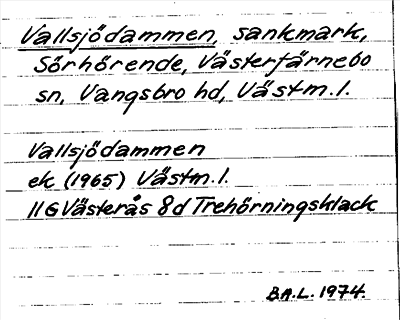 Vallsjödammen, sankmark,
Sörhörende, Västerfärnebo
sn, Vangsbro hd, Västm.l.
Vallsjödammen
ek (1965) Västm.l.
11G Västerås 8d Trehörningsklack
B.A.L. 1974.